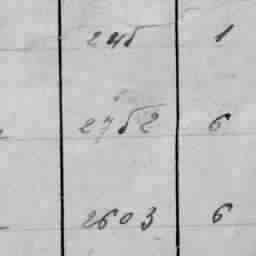 245 1
2752 6
2603 6